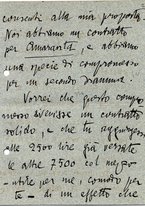 consenti alla mia proposta.
Noi abbiamo un contratto
per Amaranta, e abbiamo
una specie di compromesso
per un secondo dramma.
Vorrei che questo compro-
messo divenisse un contratto
solido, e che tu aggiungessi
alle 2500 lire già versate
le altre 7500 col
utile per me, comodo per
te - di un effetto che